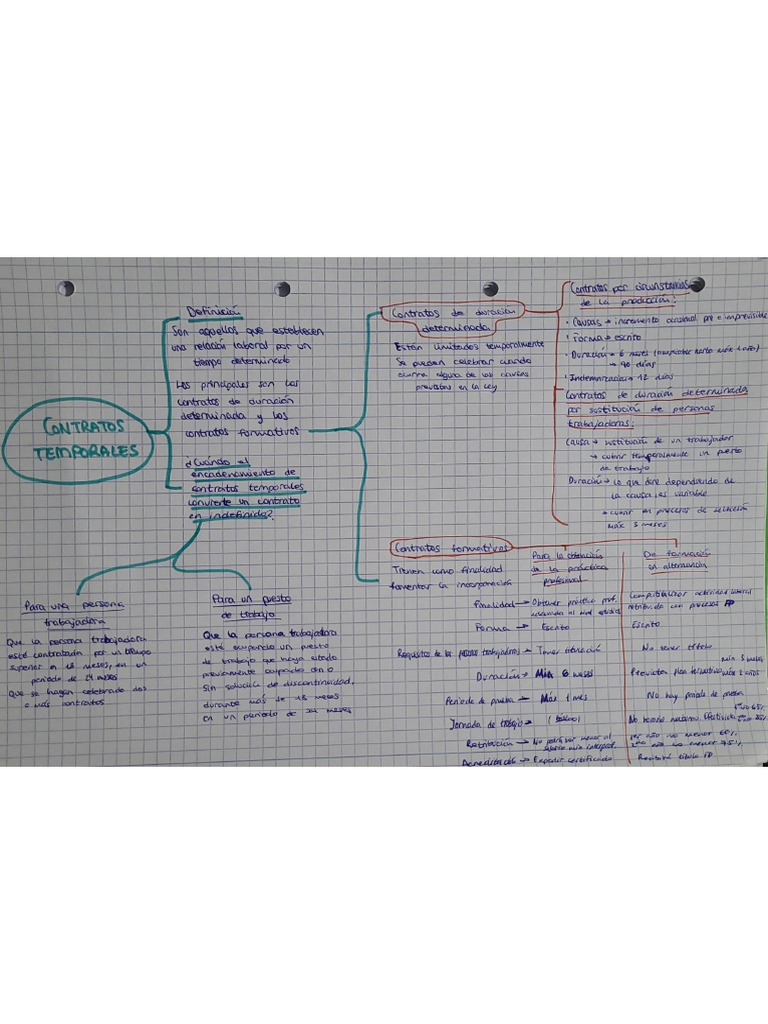 CONTRATOS
TEMPORALES
Definición
Son aquellos que establecen
una relación laboral por un
tiempo determinado
Los principales son los
contratos de duración
determinada y los
contratos formativos
¿Cuándo el
encadenamiento de
contratos temporales
convierte un contrato
en indefinido?
Para una persona
trabajadora
Que la persona trabajadora
esté contratada por un tiempo
superior en 18 meses, en un
período de 24 meses
Que se hayan celebrado dos
o más contratos
Para un puesto
de trabajo
Que la persona trabajadora
esté ocupando un puesto
de trabajo que haya estado
previamente ocupado con o
sin solución de discontinuidad,
durante más de 18 meses
en un período de 24 meses
Contratos de duración
determinada
Están limitados temporalmente
Se pueden celebrar cuando
ocurra alguna de las causas
previstas en la Ley
Contratos por circunstancias
de la producción:
· Causas → incremento ocasional pre e imprevisible
· Forma → escrito
· Duración → 6 meses (ampliable hasta máx 1 año)
→ 90 días
· Indemnización → 12 días
Contratos de duración determinada
por sustitución de personas
trabajadoras:
Causa → sustitución de un trabajador
→ cubrir temporalmente un puesto
de trabajo
Duración → lo que dure dependiendo de
la causa, es variable
→ cubrir en procesos de selección
máx 3 meses
Contratos formativos
Tienen como finalidad
fomentar la incorporación
Para la obtención
de la práctica
profesional
De formación
en alternancia
Finalidad → Obtener práctica prof.
adecuada al nivel estudios
Compatibilizar actividad laboral
retribuida con procesos FP
Forma → Escrito
Escrito
Requisitos de las personas trabajadoras → Tener titulación
No tener título
Duración → Mín 6 meses
mín 3 meses
máx 2 años
Período de prueba → Máx 1 mes
No hay período de prueba
Jornada de trabajo →
No horario nocturno. Efectividad 1er año 65%
2do año 85%
Retribución → No podrá ser menor al
1er año no menor 60%
2do año no menor 75%
Acreditación → Expedir certificado
Recibirá título FP